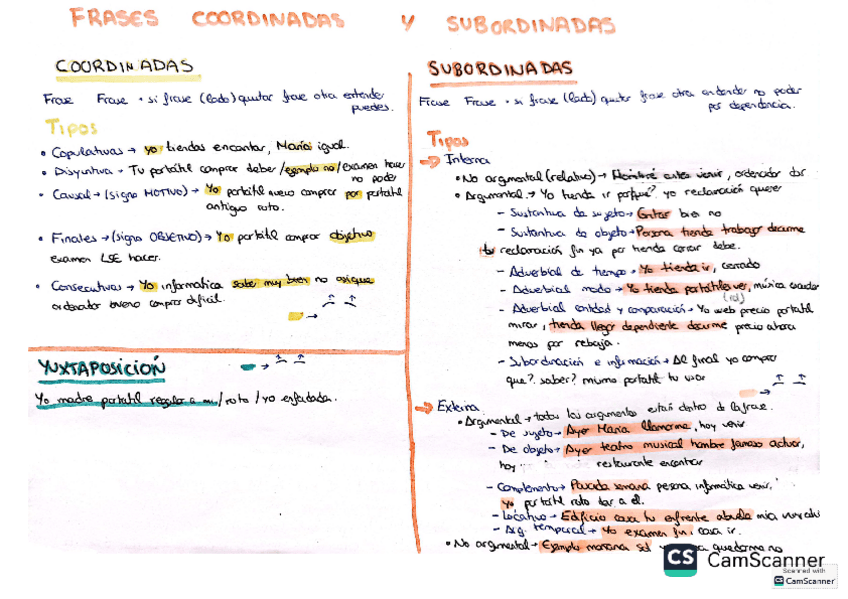 FRASES COORDINADAS Y SUBORDINADAS
COORDINADAS
Frase Frase • si frase (lado) quitar frase otra entender
puedes.
Tipos
• Copulativas → yo tiendas encantar, María igual.
• Disyuntiva → Tu portátil comprar deber / ejemplo no / examen hacer
no poder
• Causal → (signo MOTIVO) → Yo portátil nuevo comprar por portátil
antiguo roto.
• Finales → (signo OBJETIVO) → Yo portátil comprar objetivo
examen LSE hacer.
• Consecutivas → Yo informática saber muy bien no asique
ordenador bueno comprar difícil.
YUXTAPOSICIÓN
Yo madre portátil regalar a mi / roto / yo enfadada.
SUBORDINADAS
Frase Frase • si frase (lado) quitar frase otra entender no poder
por dependencia.
Tipos
→ Interna
• No argumental (relativo) → Hombre antes venir, ordenador dar
• Argumental → Yo tienda ir porque? yo reclamación querer
- Sustantiva de sujeto → Gritar bien no
- Sustantiva de objeto → Persona tienda trabajar decirme
tu reclamación fin ya por tienda cerrar debe.
- Adverbial de tiempo → Yo tienda ir, cerrado
- Adverbial modo → Yo tienda portátiles ver, música escuchar
- Adverbial cantidad y comparación → Yo web precio portátil
mirar, tienda llegar dependiente decirme precio ahora
menos por rebaja.
- Subordinación e información → Al final yo comprar
que? saber? mismo portátil tu usar
→ Externa
• Argumental → todos los argumentos están dentro de la frase.
- De sujeto → Ayer María llamarme, hoy venir
- De objeto → Ayer teatro musical hombre famoso actuar,
hoy restaurante encontrar
- Complemento → Pasada semana persona informática venir,
yo portátil roto dar a él.
- Locativo → Edificio casa tu enfrente abuela mía
- Arg. temporal → Yo examen fin, casa ir.
• No argumental → Ejemplo mañana sol quedarme no
CS CamScanner
Scanned with
CS CamScanner